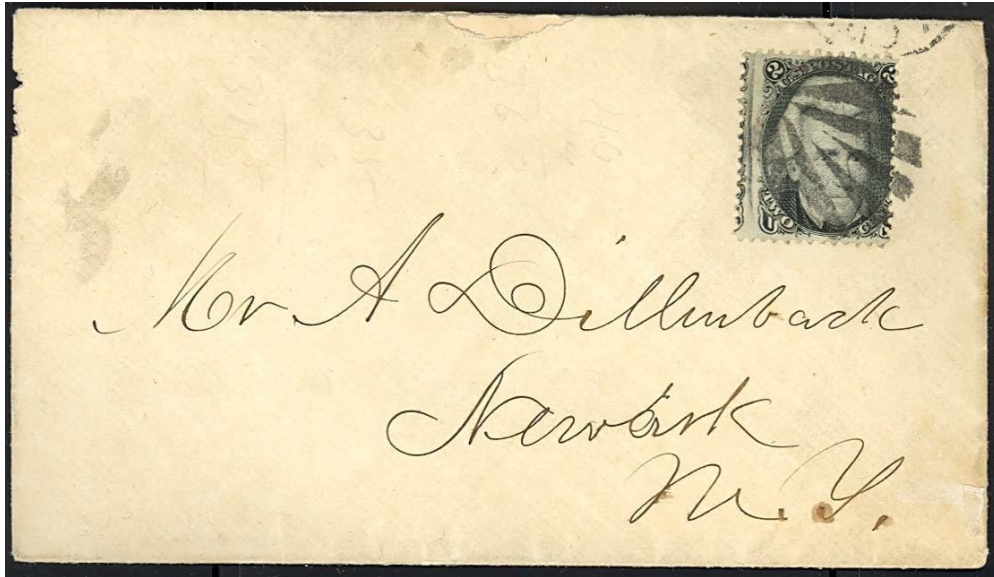 2 U.S. POSTAGE 2
TWO
Mr A Dillenback
Newark
N. Y.